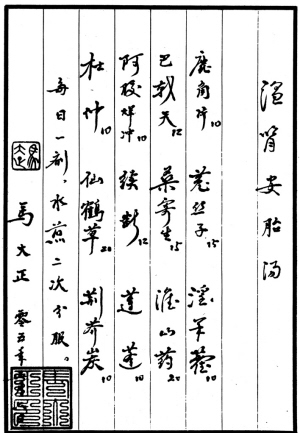 温肾安胎汤
鹿角片10 菟丝子15 淫羊藿10
巴戟天12 桑寄生15 淮山药20
阿胶烊冲10 续断12 莲蓬10
杜仲10 仙鹤草20 荆芥炭10
每日一剂，水煎二次分服。
马大正 零五年
马大正